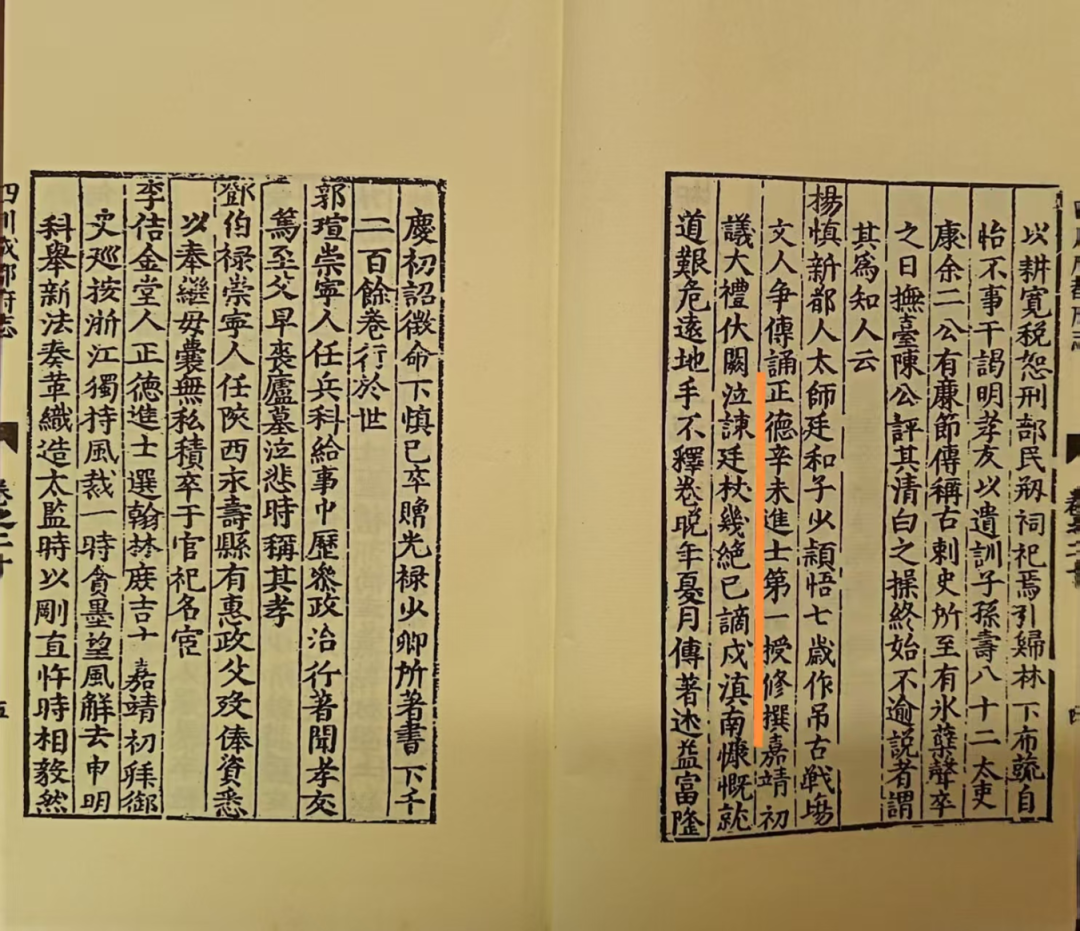 以耕寬税恕刑部民剏祠祀焉引歸林下布蔬自
怡不事干謁明孝友以遺訓子孫壽八十二太吏
康余二公有廉節傳稱古刺史所至有氷蘖聲卒
之日撫臺陳公評其清白之操終始不逾説者謂
其爲知人云
楊慎新都人太師廷和子少頴悟七歲作吊古戰塲
文人争傳誦正德辛未進士第一授修撰嘉靖初
議大禮伏闕泣諫廷杖幾絶已謫戍滇南慷慨就
道艱危遠地手不釋卷晩年憂月傳著述益富隆
慶初詔徵命下慎已卒贈光禄少卿所著書下千
二百餘卷行於世
郭瑄崇寧人任兵科給事巾歷叅政治行著聞孝友
篤至父早喪廬墓泣悲時稱其孝
鄧伯禄崇寧人任陜西永壽縣有惠政父歿俸資悉
以奉繼母囊無私積卒于官祀名宦
李佶金堂人正德進士選翰林庶吉十嘉靖初拜御
史廵按浙江獨持風裁一時貪墨望風解去申明
科舉新法奏革織造太監時以剛直忤時相毅然
四川成都府志
卷之二十
五